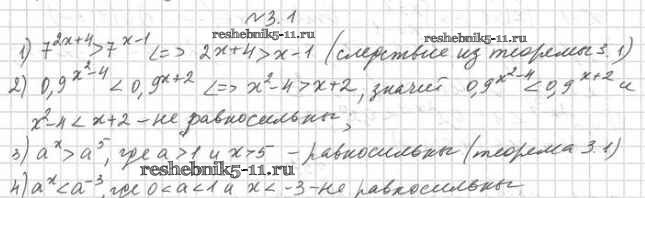 №3.1
reshebnik5-11.ru
reshebnik5-11.ru
1) 7^{2x+4}>7^{x-1} <=> 2x+4>x-1 (следствие из теоремы 3.1)
2) 0,9^{x^2-4}<0,9^{x+2} <=> x^2-4>x+2, значит 0,9^{x^2-4}<0,9^{x+2} и
x^2-4<x+2 - не равносильны;
3) a^x>a^5, где a>1 и x>5 - равносильны (теорема 3.1)
reshebnik5-11.ru
4) a^x<a^{-3}, где 0<a<1 и x<-3 - не равносильны.